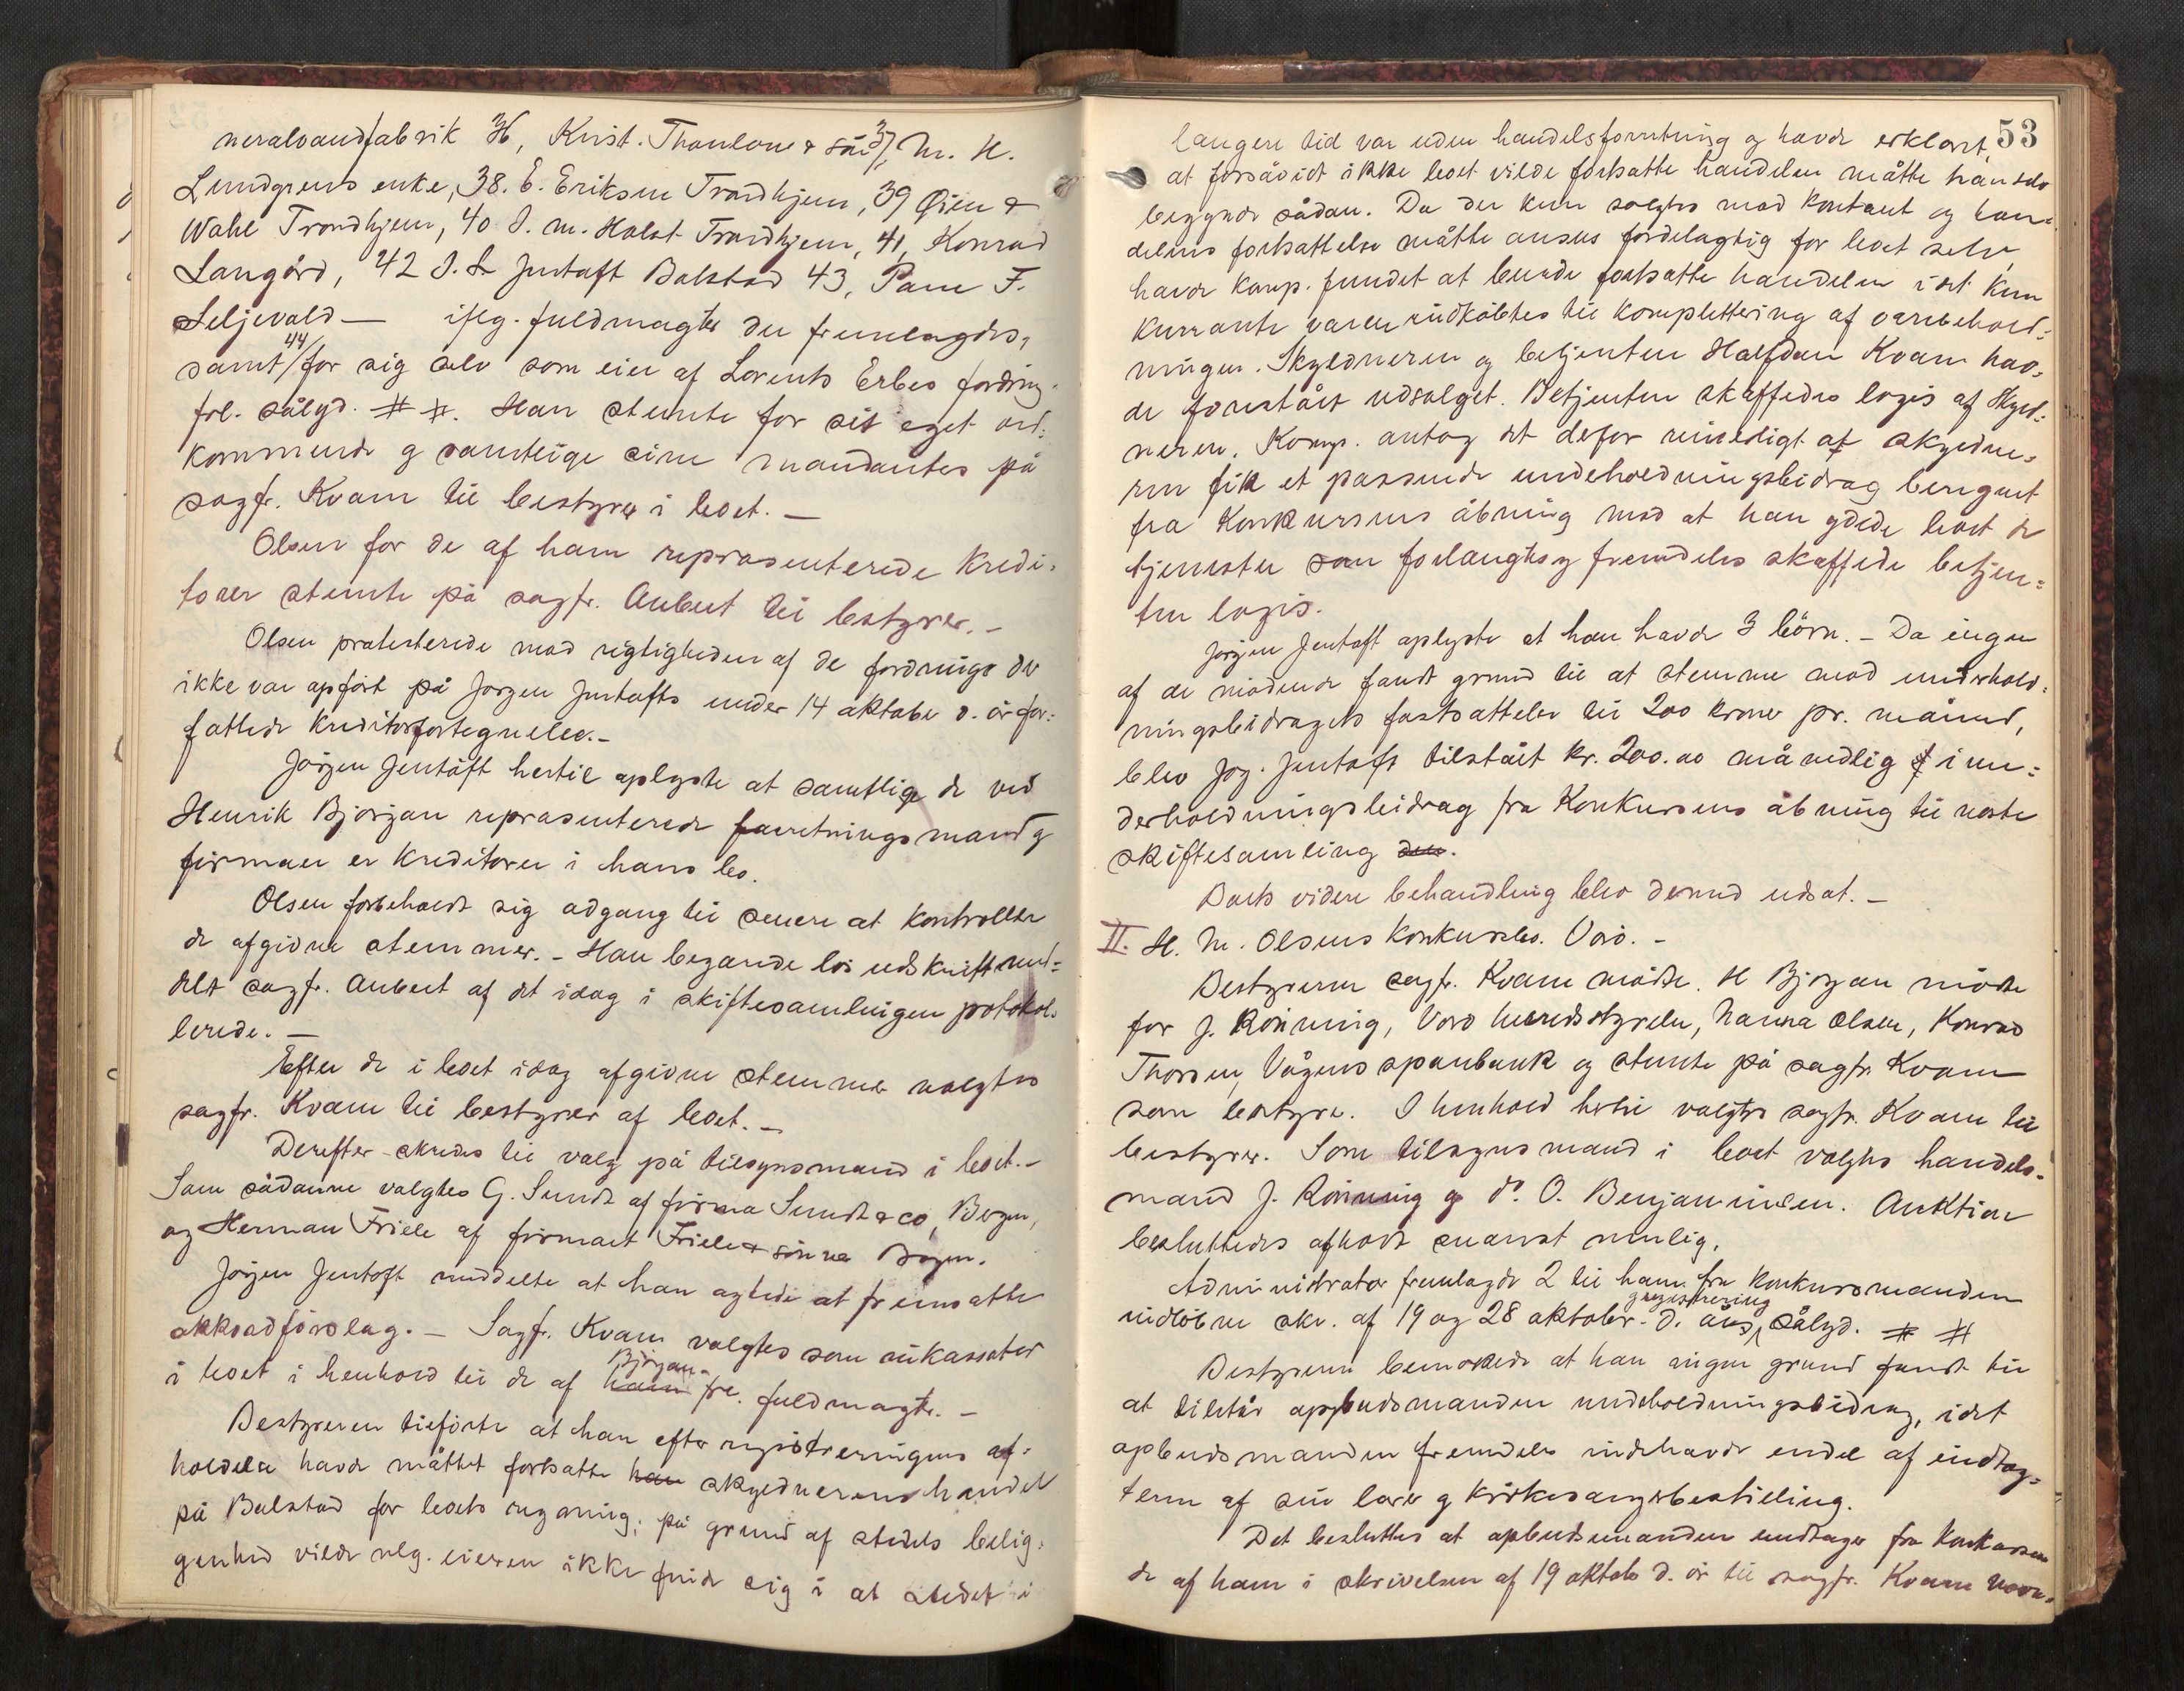 neralvandfabrik 36, Krist. Thonlone & sön 37, M. H.
Lundgrens enke, 38. E. Eriksen Trondhjem, 39 Øien &
Wahl Trondhjem, 40 J. M. Holst Trondhjem, 41, Konrad
Langård, 42 J. L. Jentoft Balstad 43, Pane F.
Seljevold — iflg. fuldmagter der fremlagdes,
samt 44/ for sig selv som eier af Lorents Erbes fordring.
frl. sålyd. # #. Han stemte for sit eget ved:
kommende og samtlige sine mandanter på
sagfr. Kvam til bestyrer i boet. —
Olsen for de af ham repræsenterede kredi:
torer stemte på sagfr. Aubert til bestyrer. —
Olsen protesterede mod rigtigheden af de fordringer der
ikke var opført på Jørgen Jentofts under 14 oktober d. år for:
fattede kreditorfortegnelse. —
Jørgen Jentoft hertil oplyste at samtlige de ved
Henrik Bjørgan repræsenterede forretningsmænd og
firmaer er kreditorer i hans bo.
Olsen forbeholdt sig adgang til senere at kontrollere
de afgivne stemmer. — Han begærede løs udskrift med:
delt sagfr. Aubert af det idag i skiftesamlingen protokol:
lerede. —
Efter de i boet idag afgivne stemmer valgtes
sagfr. Kvam til bestyrer af boet. —
Derefter skredes til valg på tilsynsmænd i boet. —
Som sådanne valgtes G. Sundt af firma Sundt & co, Bergen,
og Herman Friele af firmaet Friele & sönner Bergen.
Jørgen Jentoft meddelte at han agtede at fremsatte
akkordforslag. — Sagfr. Kvam valgtes som inkassator
i boet i henhold til de af ham Bjørgan frl. fuldmagter. —
Bestyreren tilførte at han efter registreringens af:
holdelse havde måttet fortsatte han skyldnerens handel
på Balstad for boets regning; på grund af stedets belig:
genhed vilde nlg. eieren ikke finde sig i at stedet i
53
længere tid var uden handelsforretning og havde erklæret,
at forsåvidt ikke boet vilde fortsatte handelen måtte han selv
begynde sådan. Da der kun solgtes mod kontant og han:
delens fortsattelse måtte ansees fordelagtig for boet selv,
havde komp. fundet at burde fortsatte handelen i det kun
kurante varer indkøbtes til komplettering af varebehold:
ningen. Skyldneren og betjenten Halfdan Kvam hav:
de forestået udsalget. Betjenten skaffedes logis af skyld:
neren. Komp. antog det derfor rimeligt at skyldne:
ren fik et passende underholdningsbidrag beregnet
fra konkursens åbning mod at han ydede boet de
tjenester som forlangtes og fremdeles skaffede betjen:
ten logis.
Jørgen Jentoft oplyste at han havde 3 börn. — Da ingen
af de mødende fandt grund til at stemme mod underhold:
ningsbidragets fastsattelse til 200 kroner pr. måned,
blev Jørg. Jentoft tilstået kr. 200.00 månedlig i un:
derholdningsbidrag fra konkursens åbning til næste
skiftesamling den.
Boets videre behandling blev dermed udsat. —
II. H. M. Olsens konkursbo. Værø. —
Bestyreren sagfr. Kvam mødte. H Bjørgan mødte
for J. Rönning, Værø herredsstyrelse, Nanna Olsen, Konrad
Thorsen, Vågens sparebank og stemte på sagfr. Kvam
som bestyrer. I henhold hertil valgtes sagfr. Kvam til
bestyrer. Som tilsynsmand i boet valgtes handels:
mand J. Rönning og do. O. Benjaminsen. Auktion
besluttedes afholdt snarest mulig.
Administrator fremlagde 2 til ham fra konkursmanden
indløbne skr. af 19 og 28 oktober d. års, og registrering sålyd. # #
Bestyreren bemærkede at han ingen grund fandt til
at tilstår opbudsmanden underholdningsbidrag, idet
opbudsmanden fremdeles indehavde endel af indtæg:
terne af sin lærer og kirkesangerbestilling.
Det besluttes at opbudsmanden undtager fra konkursen
de af ham i skrivelsen af 19 oktober d. år til sagfr. Kvam nævn: